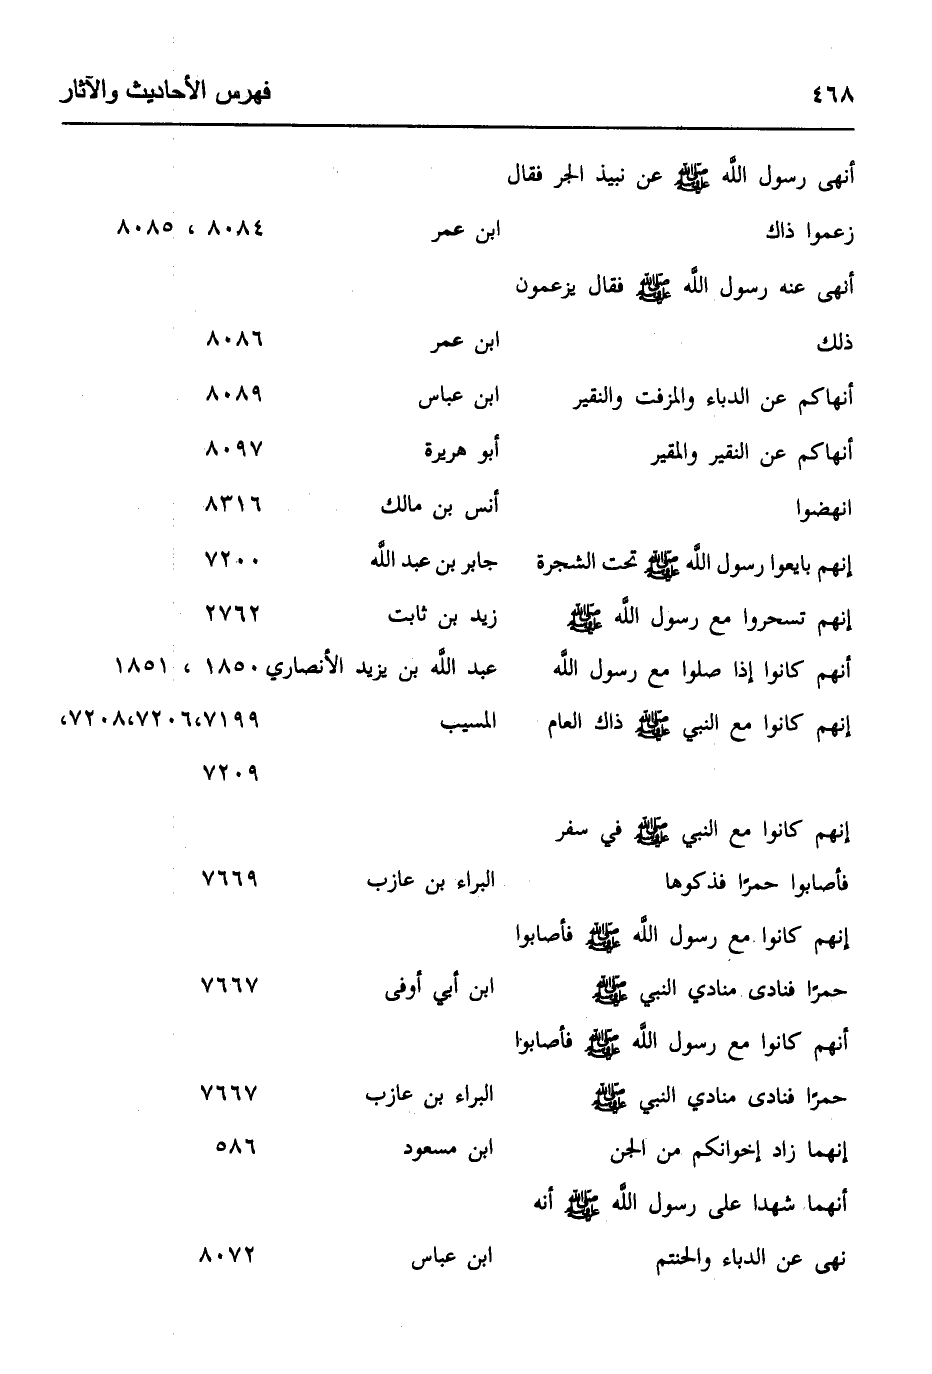 ٤٦٨ فهرس الأحاديث والآثار
أنهى رسول اللَّه ﷺ عن نبيذ الجر فقال
زعموا ذاك ابن عمر ٨٠٨٤ ، ٨٠٨٥
أنهى عنه رسول اللَّه ﷺ فقال يزعمون
ذلك ابن عمر ٨٠٨٦
أنهاكم عن الدباء والمزفت والنقير ابن عباس ٨٠٨٩
أنهاكم عن النقير والمقير أبو هريرة ٨٠٩٧
انهضوا أنس بن مالك ٨٣١٦
إنهم بايعوا رسول اللَّه ﷺ تحت الشجرة جابر بن عبد اللَّه ٧٢٠٠
إنهم تسحروا مع رسول اللَّه ﷺ زيد بن ثابت ٢٧٦٢
أنهم كانوا إذا صلوا مع رسول اللَّه عبد اللَّه بن يزيد الأنصاري ١٨٥٠ ، ١٨٥١
إنهم كانوا مع النبي ﷺ ذاك العام المسيب ٧١٩٩،٧٢٠٦،٧٢٠٨،
٧٢٠٩
إنهم كانوا مع النبي ﷺ في سفر
فأصابوا حمرًا فذكوها البراء بن عازب ٧٦٦٩
إنهم كانوا مع رسول اللَّه ﷺ فأصابوا
حمرًا فنادى منادي النبي ﷺ ابن أبي أوفى ٧٦٦٧
أنهم كانوا مع رسول اللَّه ﷺ فأصابوا
حمرًا فنادى منادي النبي ﷺ البراء بن عازب ٧٦٦٧
إنهما زاد إخوانكم من الجن ابن مسعود ٥٨٦
أنهما شهدا على رسول اللَّه ﷺ أنه
نهى عن الدباء والحنتم ابن عباس ٨٠٧٢